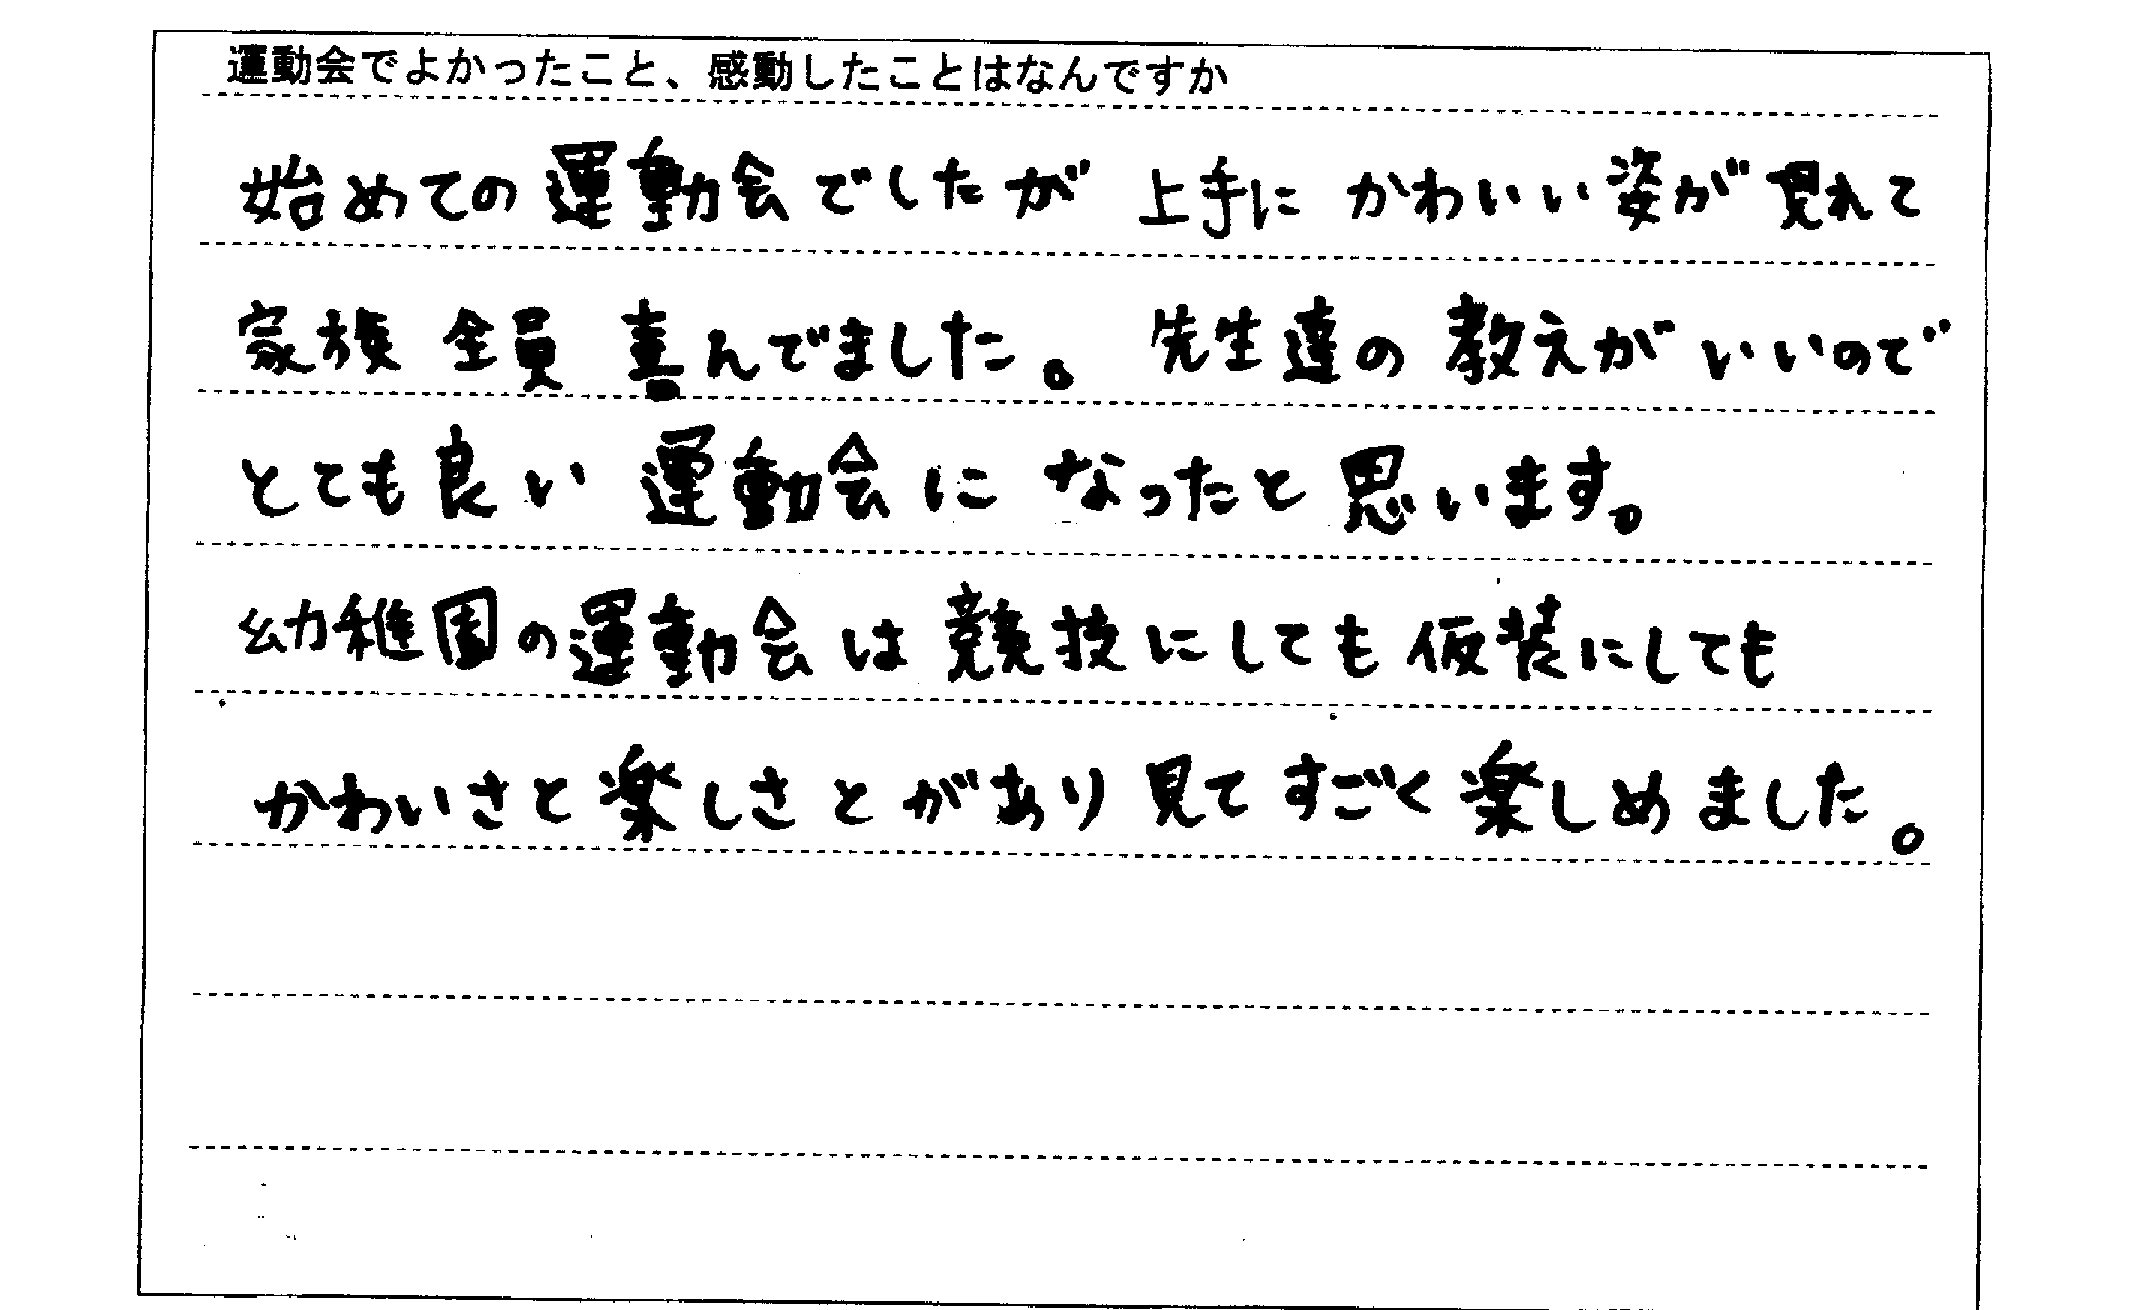 運動会でよかったこと、感動したことはなんですか
始めての運動会でしたが 上手に かわいい姿が見れて
家族 全員 喜んでました。 先生達の 教えがいいので
とても良い 運動会に なったと思います。
幼稚園の運動会は 競技にしても 仮装にしても
かわいさと楽しさとがあり見てすごく楽しめました。